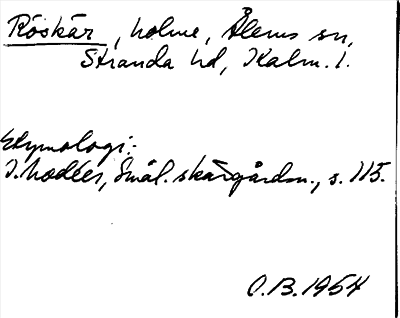 Röskär, holme, Ålems sn,
Stranda hd, Kalm. l.
Etymologi:
I. Modéer, Smål. skärgårdsn., s. 115.
O.B. 1954